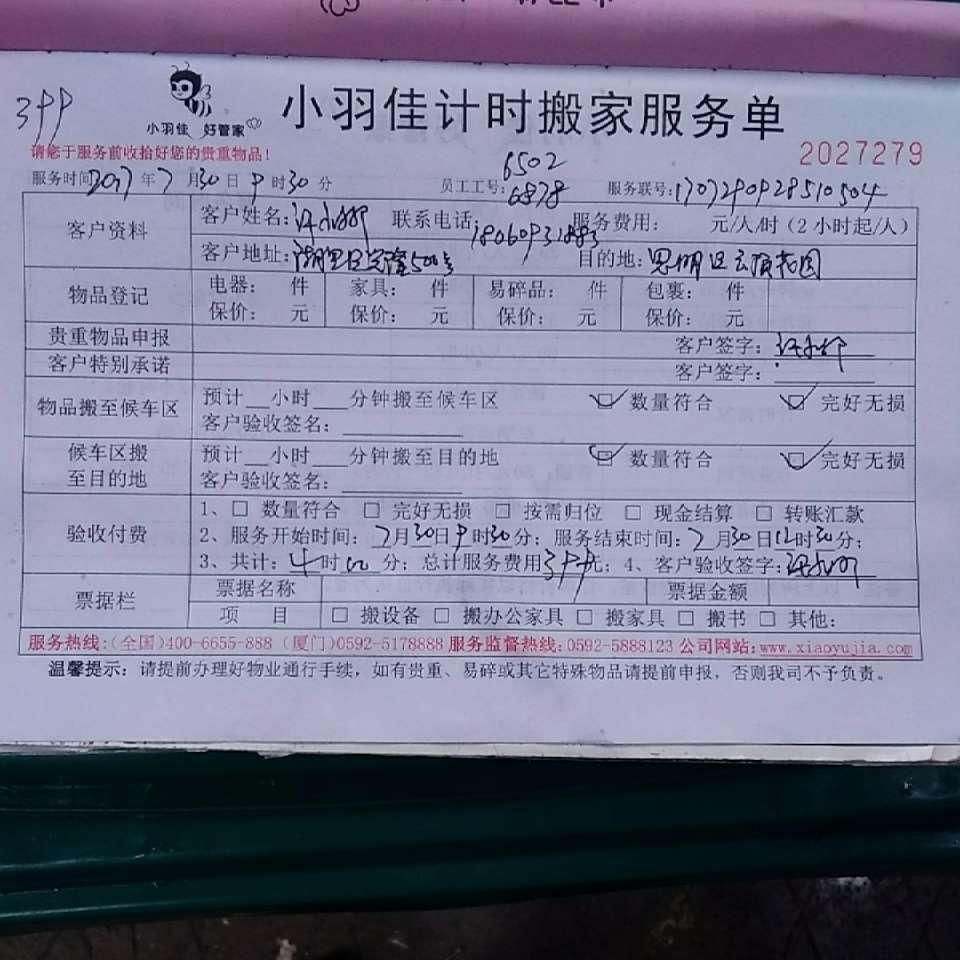 399
小羽佳 好管家
小羽佳计时搬家服务单
请您于服务前收拾好您的贵重物品!
2027279
6502
服务时间2017年7月30日9时30分 员工工号:6878 服务联号:1707290928510504
客户资料
客户姓名: 联系电话:18060932883 服务费用: 元/人/时(2小时起/人)
客户地址:湖里区 500号 目的地:思明区云顶花园
物品登记
电器: 件 家具: 件 易碎品: 件 包裹: 件
保价: 元 保价: 元 保价: 元 保价: 元
贵重物品申报 客户签字:
客户特别承诺 客户签字:
物品搬至候车区
预计__小时___分钟搬至候车区 ☑ 数量符合 ☑ 完好无损
客户验收签名:
候车区搬至目的地
预计__小时___分钟搬至目的地 ☑ 数量符合 ☑ 完好无损
客户验收签名:
验收付费
1、□ 数量符合 □ 完好无损 □ 按需归位 □ 现金结算 □ 转账汇款
2、服务开始时间:7月30日9时30分; 服务结束时间:7月30日12时30分;
3、共计:4时00分; 总计服务费用399元; 4、客户验收签字:
票据栏
票据名称 票据金额
项 目 □ 搬设备 □ 搬办公家具 □ 搬家具 □ 搬书 □ 其他:
服务热线:(全国)400-6655-888 (厦门)0592-5178888 服务监督热线:0592-5888123 公司网站:www.xiaoyujia.com
温馨提示:请提前办理好物业通行手续,如有贵重、易碎或其它特殊物品请提前申报,否则我司不予负责。